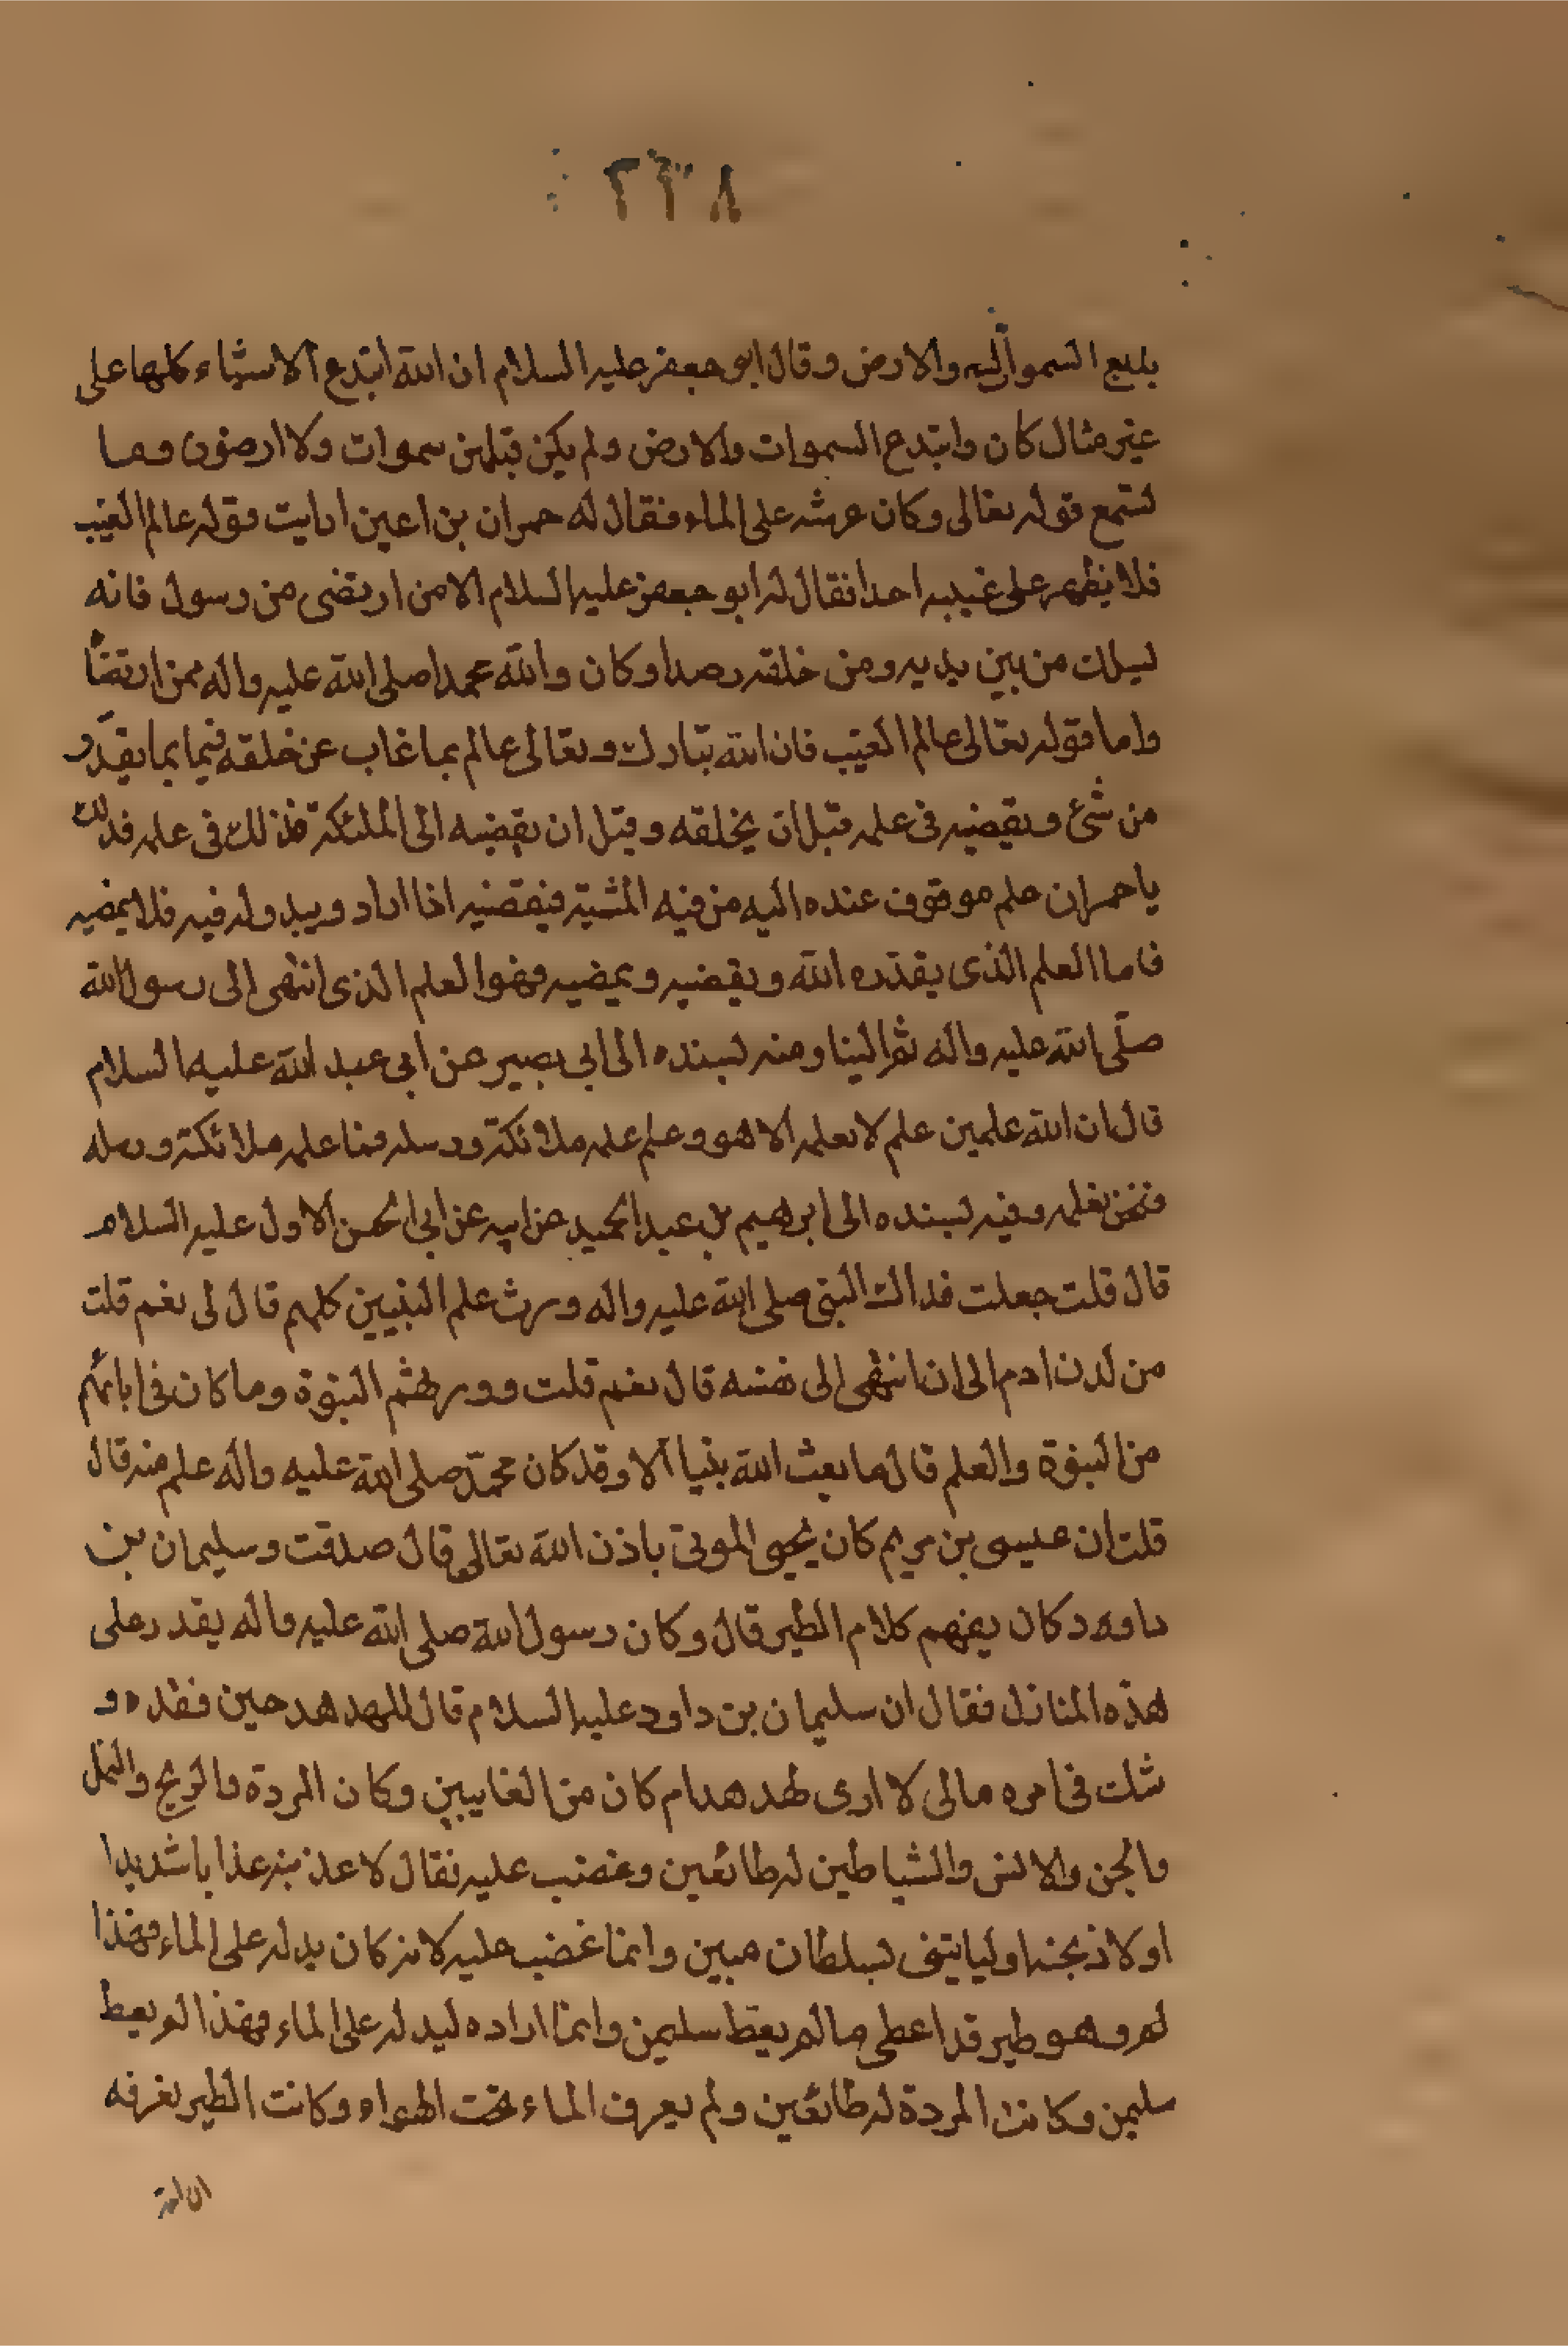 ٢٣٨
بديع السموات والارض وقال ابو جعفر عليه السلام ان الله ابتدع الاشياء كلها على
غير مثال كان وابتدع السموات والارض ولم يكن قبلهن سموات ولا ارضون وما
تستمع قوله تعالى وكان عرشه على الماء فقال له حمران بن اعين ارايت قوله عالم الغيب
فلا يظهر على غيبه احدا فقال له ابو جعفر عليه السلام الا من ارتضى من رسول فانه
يسلك من بين يديه ومن خلفه رصدا وكان والله محمدا صلى الله عليه واله ممن ارتضا
واما قوله تعالى عالم الغيب فان الله تبارك وتعالى عالم بما غاب عن خلقه فيما بما يقدر
من شئ ويقضيه فى علمه قبل ان يخلقه وقبل ان يقضيه الى الملئكة فذلك فى علمه فذلك
ياحمران علم موقوف عنده اليه من فيه المشية فيقضيه اذا اراد ويبدوله فيه فلا يمضيه
فاما العلم الذى يقدره الله ويقضيه ويمضيه فهوا لعلم الذى انتهى الى رسول الله
صلى الله عليه واله ثم الينا ومنه بسنده الى ابى بصير عن ابى عبد الله عليه السلام
قال ان الله علمين علم لا يعلمه الا هو وعلم علمه ملائكته ورسله فما علمه ملائكته ورسله
فنحن نعلمه وفيه بسنده الى ابرهيم بن عبد الحميد عن ابيه عن ابى الحسن الاول عليه السلام
قال قلت جعلت فداك النبى صلى الله عليه واله ورث علم النبيين كلهم قال لى نعم قلت
من لدن ادم الى ان انتهى الى نفسه قال نعم قلت وورثهم النبوة وما كان فى ابائهم
من النبوة والعلم قال ما بعث الله بنيا الا وقد كان محمد صلى الله عليه واله علم منه قال
قلت ان عيسى بن مريم كان يحيى الموتى باذن الله تعالى قال صدقت وسليمان بن
داود كان يفهم كلام الطير قال وكان رسول الله صلى الله عليه واله يقدر على
هذه المنازل فقال ان سليمان بن داود عليه السلام قال للهدهد حين فقده و
شك فى امره مالى لا ارى لهدهد ام كان من الغايبين وكان المردة والريح والنمل
والجن والانس والشياطين له طائعين وغضب عليه فقال لاعذبنه عذابا شديدا
او لاذبحنه او ليايتنى بسلطان مبين وانما غضب عليه لانه كان يدله على الماء فهذا
لهو وهو طير قد اعطى ما لم يعط سليمن وانما اراده ليدله على الماء فهذا لم يعط
سليمن وكانت المردة له طائعين ولم يعرف الماء تحت الهواء وكانت الطير تعرفه
ان لله